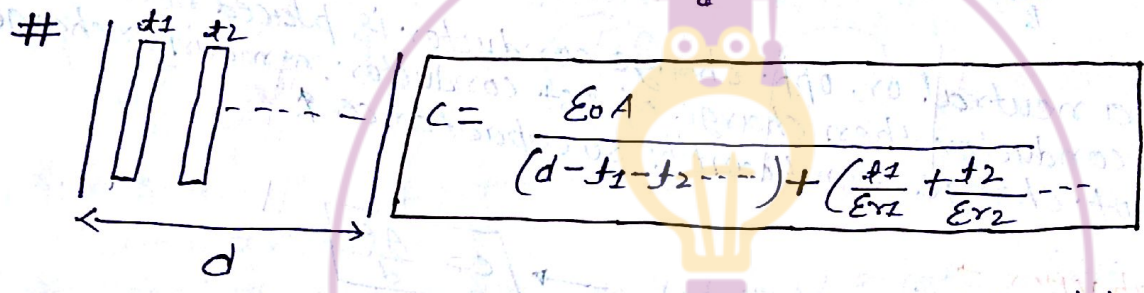 #
t1 t2
d
C = ε0A / (d-t1-t2----) + (t1/εr1 + t2/εr2 ---